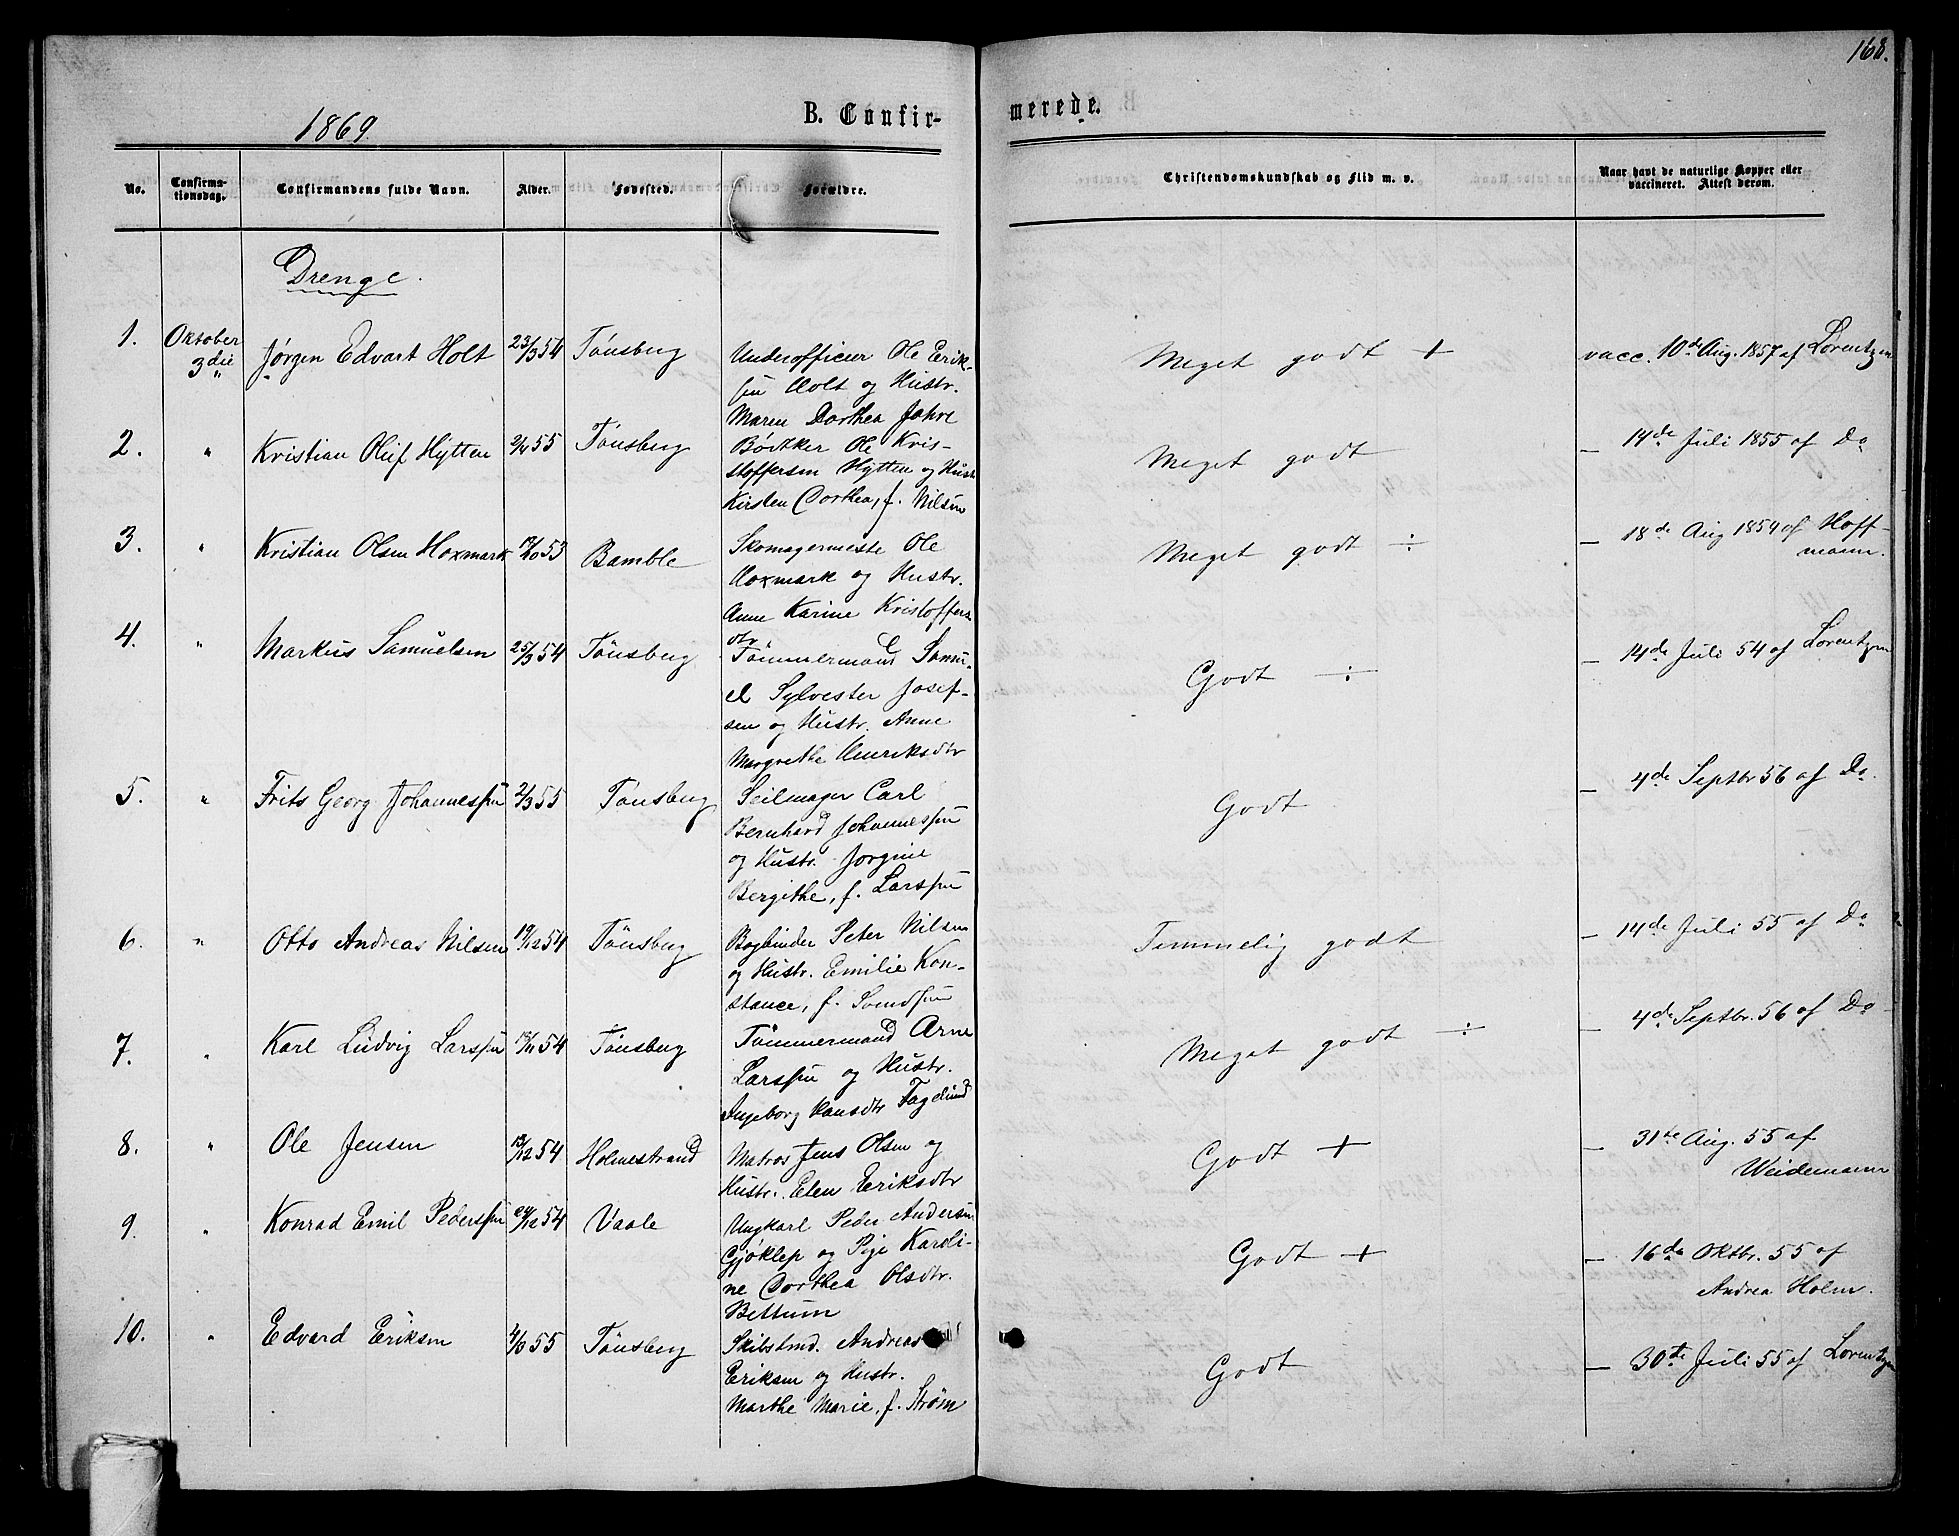 168.
1869.
B. Confir-
merede.
No.
Confirma-
tionsdag.
Confirmandens fulde Navn.
Alder.
Fødested.
Forældre.
Christendomskundskab og Flid m. v.
Naar havt de naturlige Kopper eller
vaccineret. Attest derom.
Drenge.
1. Oktober 3die Jørgen Edvart Holt 23/3 54 Tönsberg
Underofficier Ole Erik-
sen Holt og Hustr.
Maren Dorthea Jahre
Meget godt +
vacc. 10de Aug. 1857 af Lorentzen
2. " Kristian Oluf Hytten 2/4 55 Tönsberg
Bödtker Ole Kris-
stoffersen Hytten og Hustr.
Kirsten Dorthea, f. Nilsen
Meget godt
— 14de Juli 1855 af Do
3. " Kristian Olsen Hoxmark 17/10 53 Bamble
Skomagermeste Ole
Hoxmark og Hustr.
Anne Karine Kristoffers
dtr.
Meget godt ÷
— 18de Aug 1854 af Hoff-
mann.
4. " Markus Samuelsen 25/3 54 Tönsberg
Tömmermand Samu-
el Sylvester Josef-
sen og Hustr. Anne
Margrethe Henriksdtr
Godt ÷
— 14de Juli 54 af Lorentzen
5. " Frits Georg Johannessen 2/3 55 Tönsberg
Seilmager Carl
Bernhard Johannessen
og Hustr. Jorgine
Bergithe, f. Larssen
Godt
— 4de Septbr 56 af Do.
6. " Otto Andreas Nilsen 19/12 54 Tönsberg
Bogbinder Peter Nilsen
og Hustr. Emilie Kon-
stance, f. Svendsen
Temmelig godt
— 14de Juli 55 af Do
7. " Karl Ludvig Larssen 18/11 54 Tönsberg
Tömmermand Arne
Larssen og Hustr.
Ingeborg Hansdtr Faglund
Meget godt ÷
— 4de Septbr. 56 af Do
8. " Ole Jensen 13/12 54 Holmestrand
Matros Jens Olsen og
Hustr. Elen Eriksdtr
Godt +
— 31te Aug. 55 af
Weidemann
9. " Konrad Emil Pederssen 24/12 54 Vaale
Ungkarl Peder Andersen
Gjöklep og Pige Karoli-
ne Dorthea Olsdtr.
Bettum
Godt +
— 16de Oktbr. 55 af
Andrea Holm.
10. " Edvard Eriksen 55 Tönsberg
Skibstmd. Andreas
Eriksen og Hustr.
Marthe Marie, f. Strøm
Godt
— 30te Juli 55 af Lorentzen